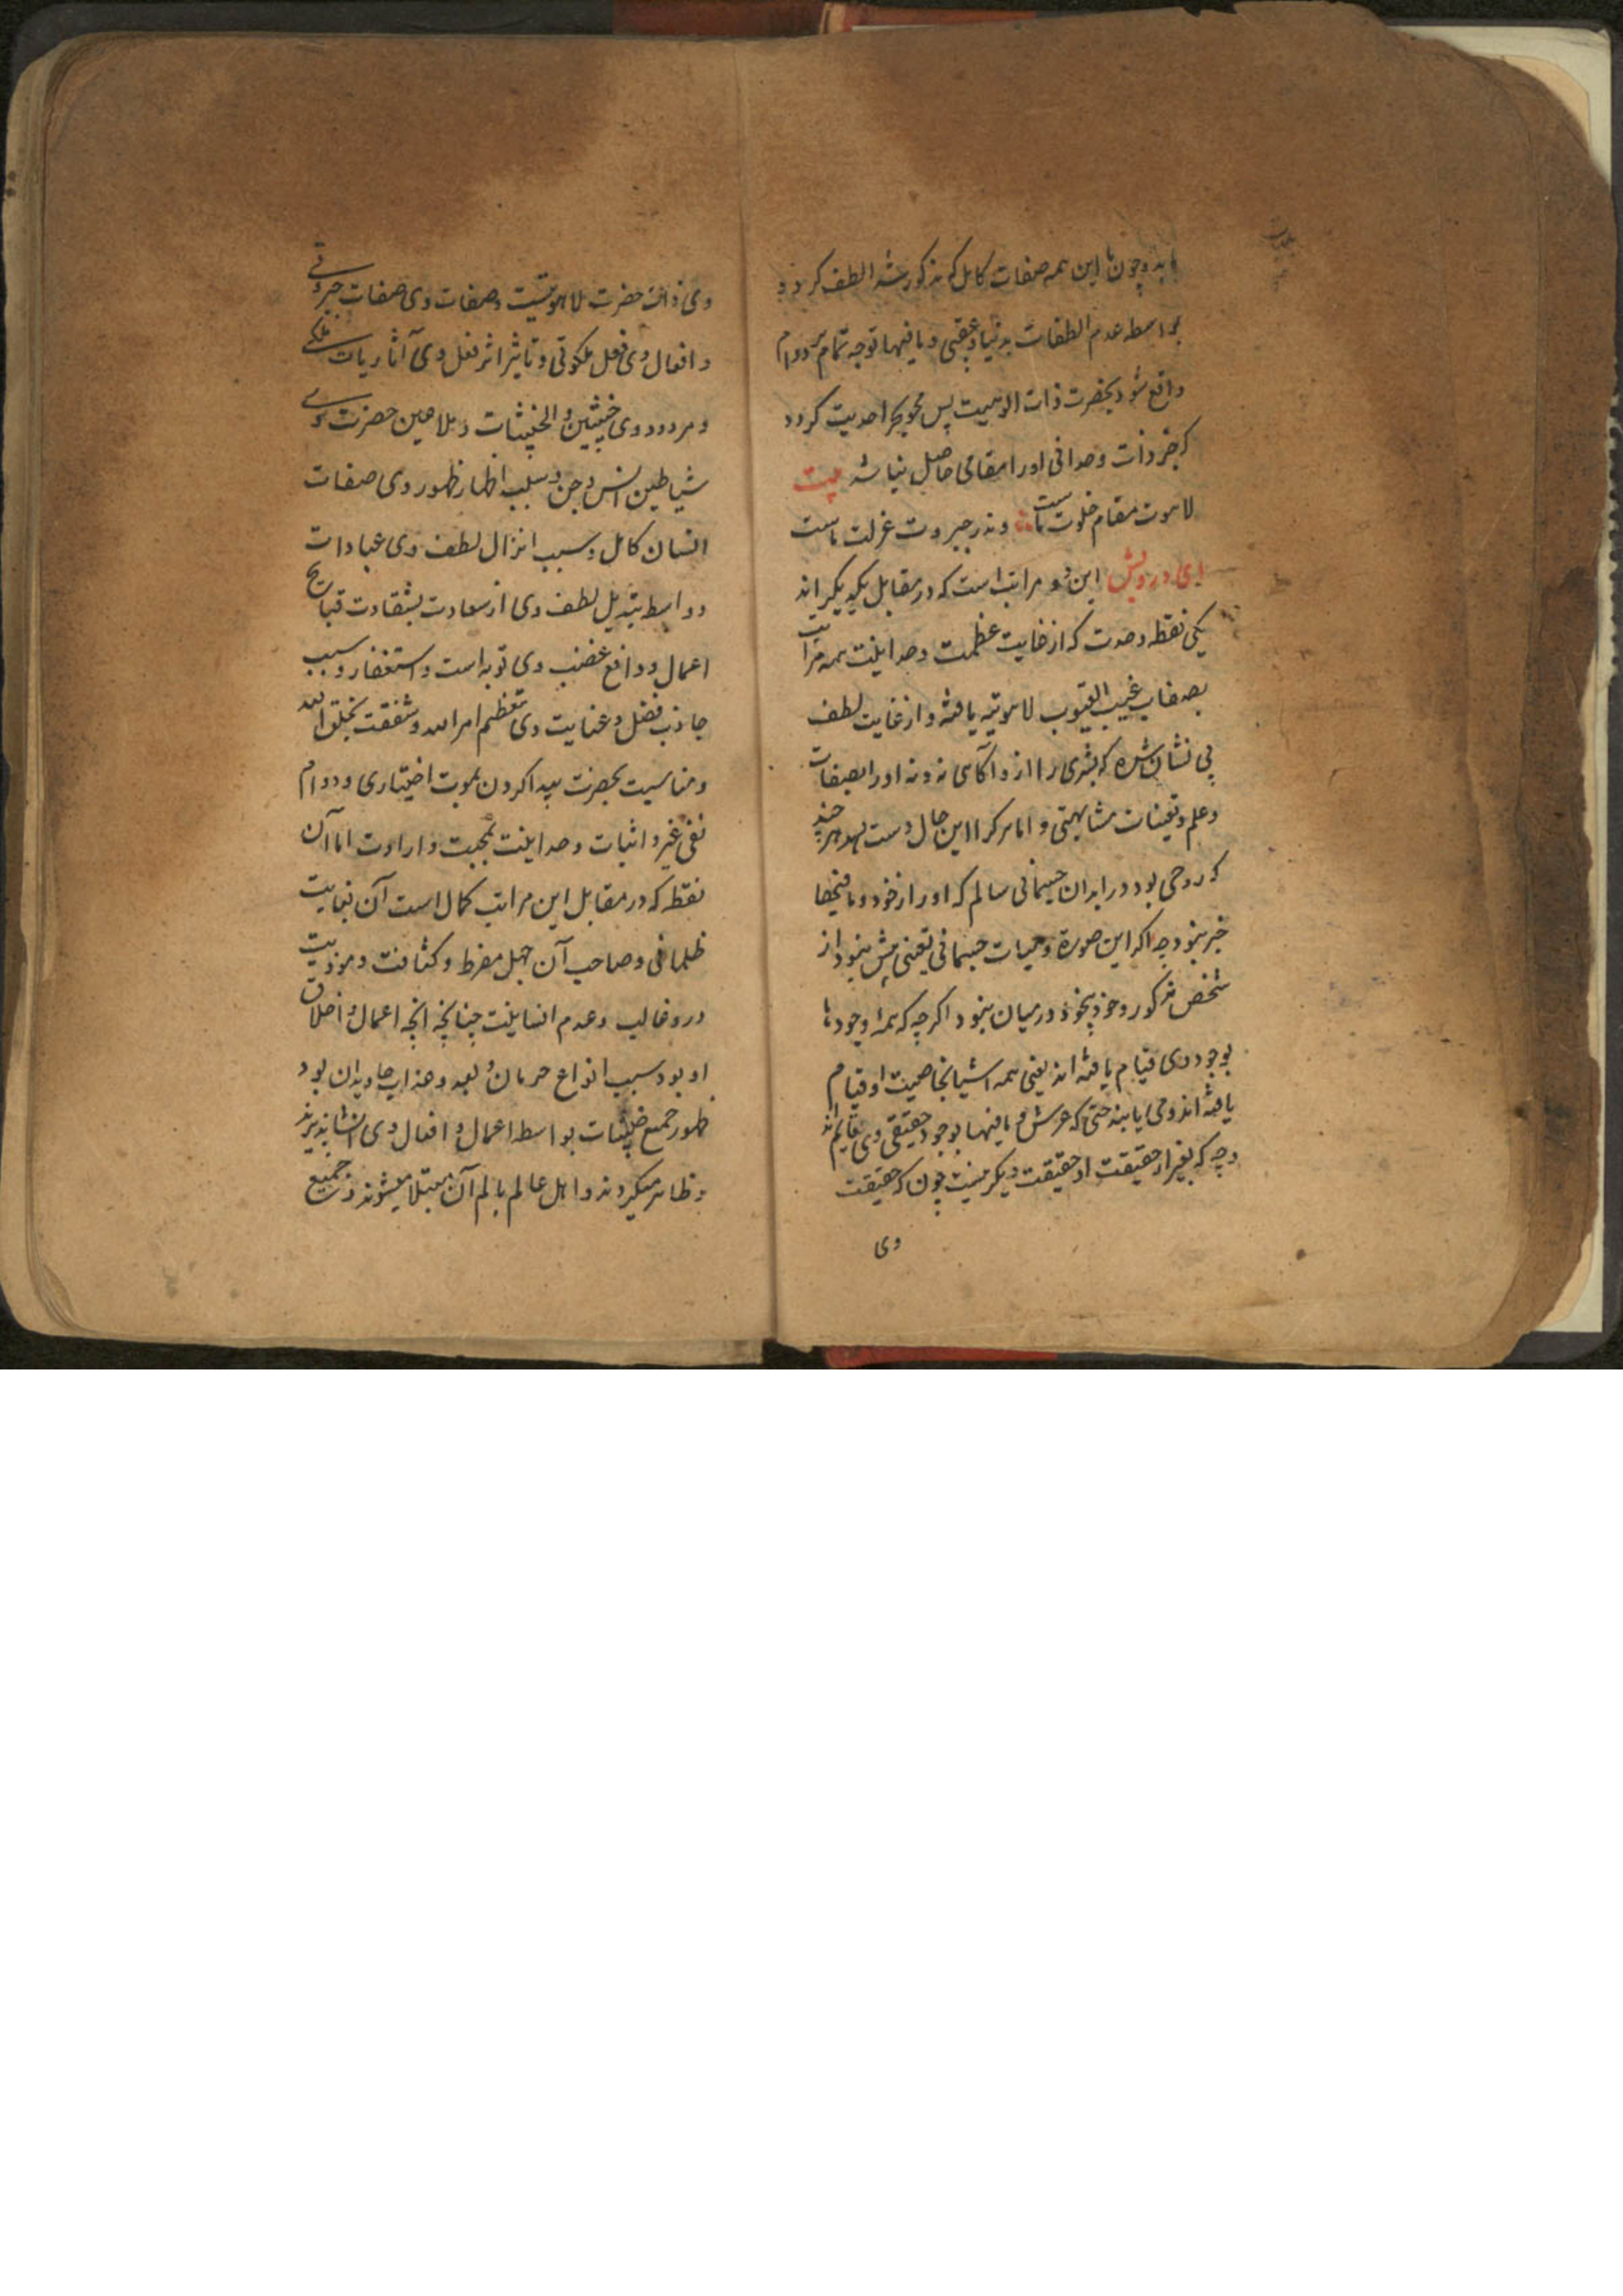 یابد و چون با این همه صفات کامل که مذکور شد الطف کردد و
بواسطه عدم الطفات بدنیا و عقبی و ما فیها توجه تمام بر دوام
واقع شود بحضرت ذات الوهیت پس محو بحر احدیت کردد
که جز ذات وحدانی او را مقامی حاصل نباشد بیت
لاهوت مقام خلوت ماست وندر جبروت عزلت ماست
ای درویش این دو مراتب است که در مقابل یکدیکراند
یکی نقطه وحدت که از غایت عظمت وحدانیت همه مراتب
بصفات غیب الغیوب لاهوتیه یافته و از غایت لطف
بی نشان شده که بشری را از و آکاهی نه و نه او را بصفات
و علم و تعینات مشابهتی و اما هر کرا این حال دست دهد هر چند
که روحی بود در ابدان جسمانی سالم که او را از خود و مافیها
خبر نبود چه اکر این صورة و حیات جسمانی تعینی پیش نبود از
شخص مذکور و خود بخود در میان نبود اکرچه که همه وجودها
بوجود وی قیام یافته اند یعنی همه اشیا بخاصیت او قیام
یافته اند و می یابند حتی که عرش و ما فیها بوجود حقیقی وی قایم اند
و چه که بغیر از حقیقت او حقیقت دیکر نیست چون که حقیقت
وی
وی ذات حضرت لاهوتیست و صفات وی صفات جبروتی
و افعال وی فعل ملکوتی و تاثیر اثر فعل وی آثاریات ملکی
و مردود وی خبیثین و الخبیثات و ملاعین حضرت وی
شیاطین انس و جن و سلب اظهار ظهور وی صفات
انسان کامل و سبب انزال لطف وی عبادات
و واسطه تبدیل لطف وی از سعادت بشقاوت قبایح
اعمال و دافع غضب وی توبه است و استغفار و سبب
جاذب فضل و عنایت وی تعظیم امر الله و شفقت بخلق الله
و مناسبت بحضرت پیدا کردن بموت اختیاری و دوام
نفی غیر و اثبات وحدانیت بمحبت و ارادت اما آن
نقطه که در مقابل این مراتب کمال است آن نهایت
ظلمانی و صاحب آن جهل مفرط و کثافت و موذیت
درو غالب و عدم انسانیت چنانچه انچه اعمال و اخلاق
او بود سبب انواع حرمان و بعد و عذاب جاویدان بود
ظهور جمیع خبیثات بواسطه اعمال و افعال وی
و ظاهر میکردند و اهل عالم بالم آن مبتلا میشوند و جمیع